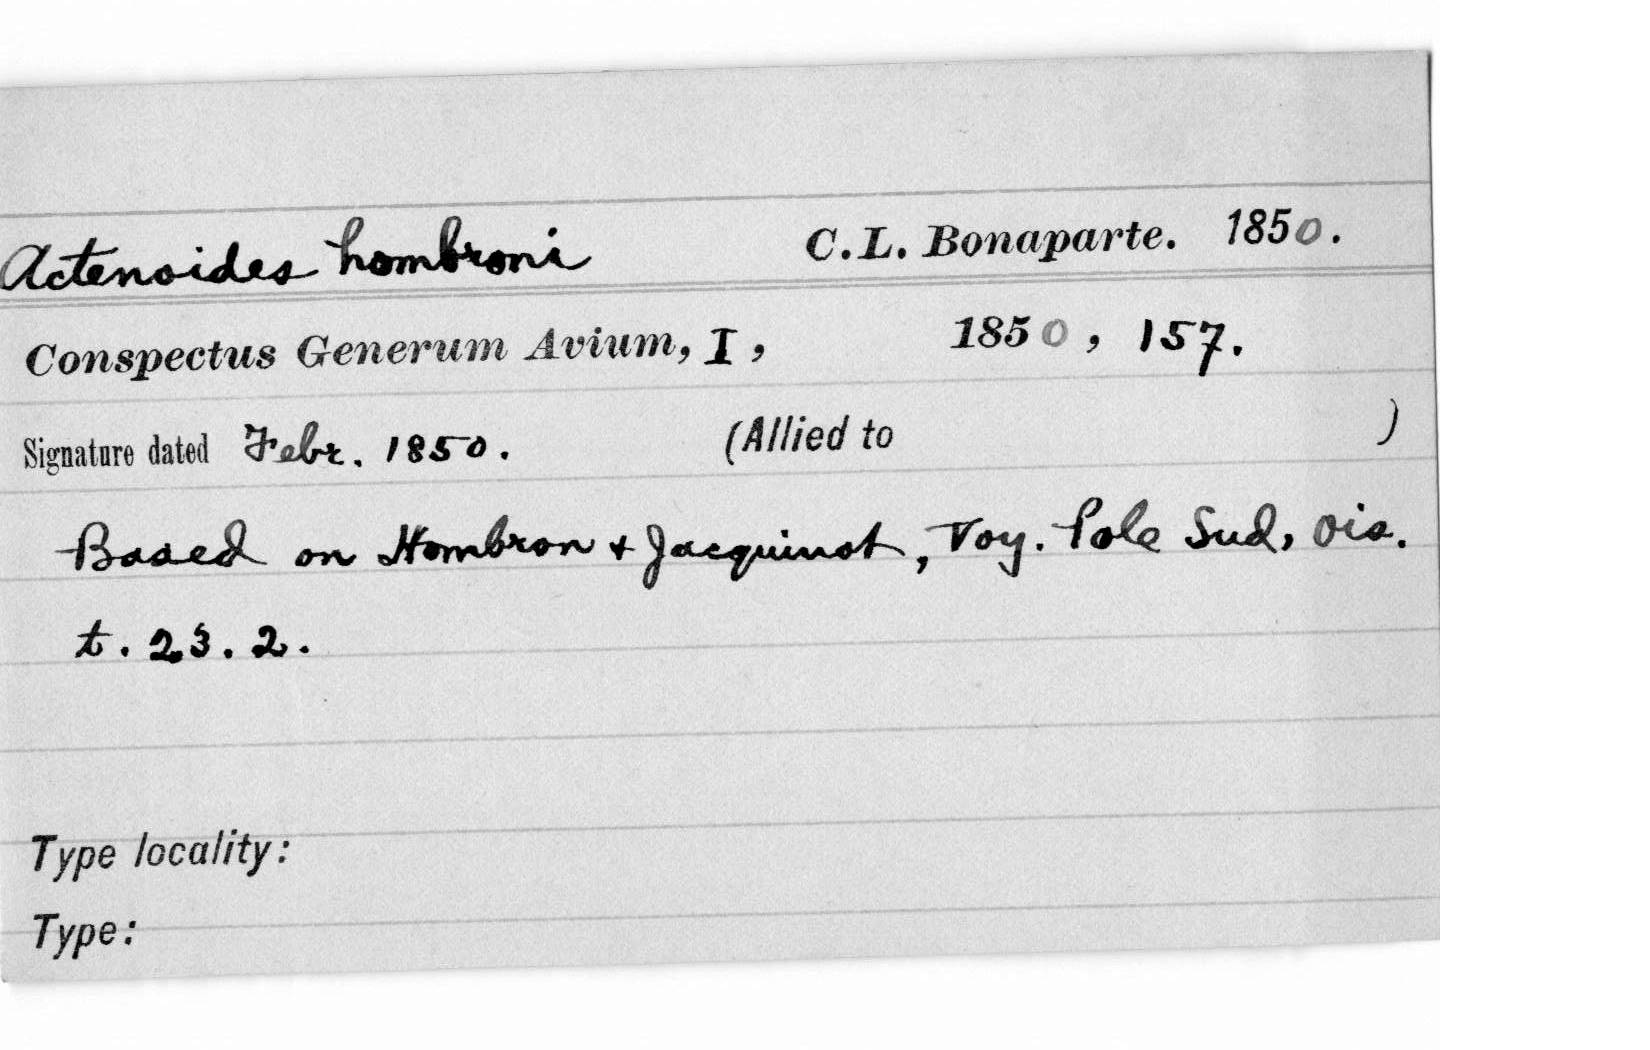 Actenoides hombroni C.L. Bonaparte. 1850.
Conspectus Generum Avium, I, 1850, 157.
Signature dated Febr. 1850. (Allied to )
Based on Hombron + Jacquinot, Voy. Pole Sud, Ois.
t. 23. 2.
Type locality:
Type: